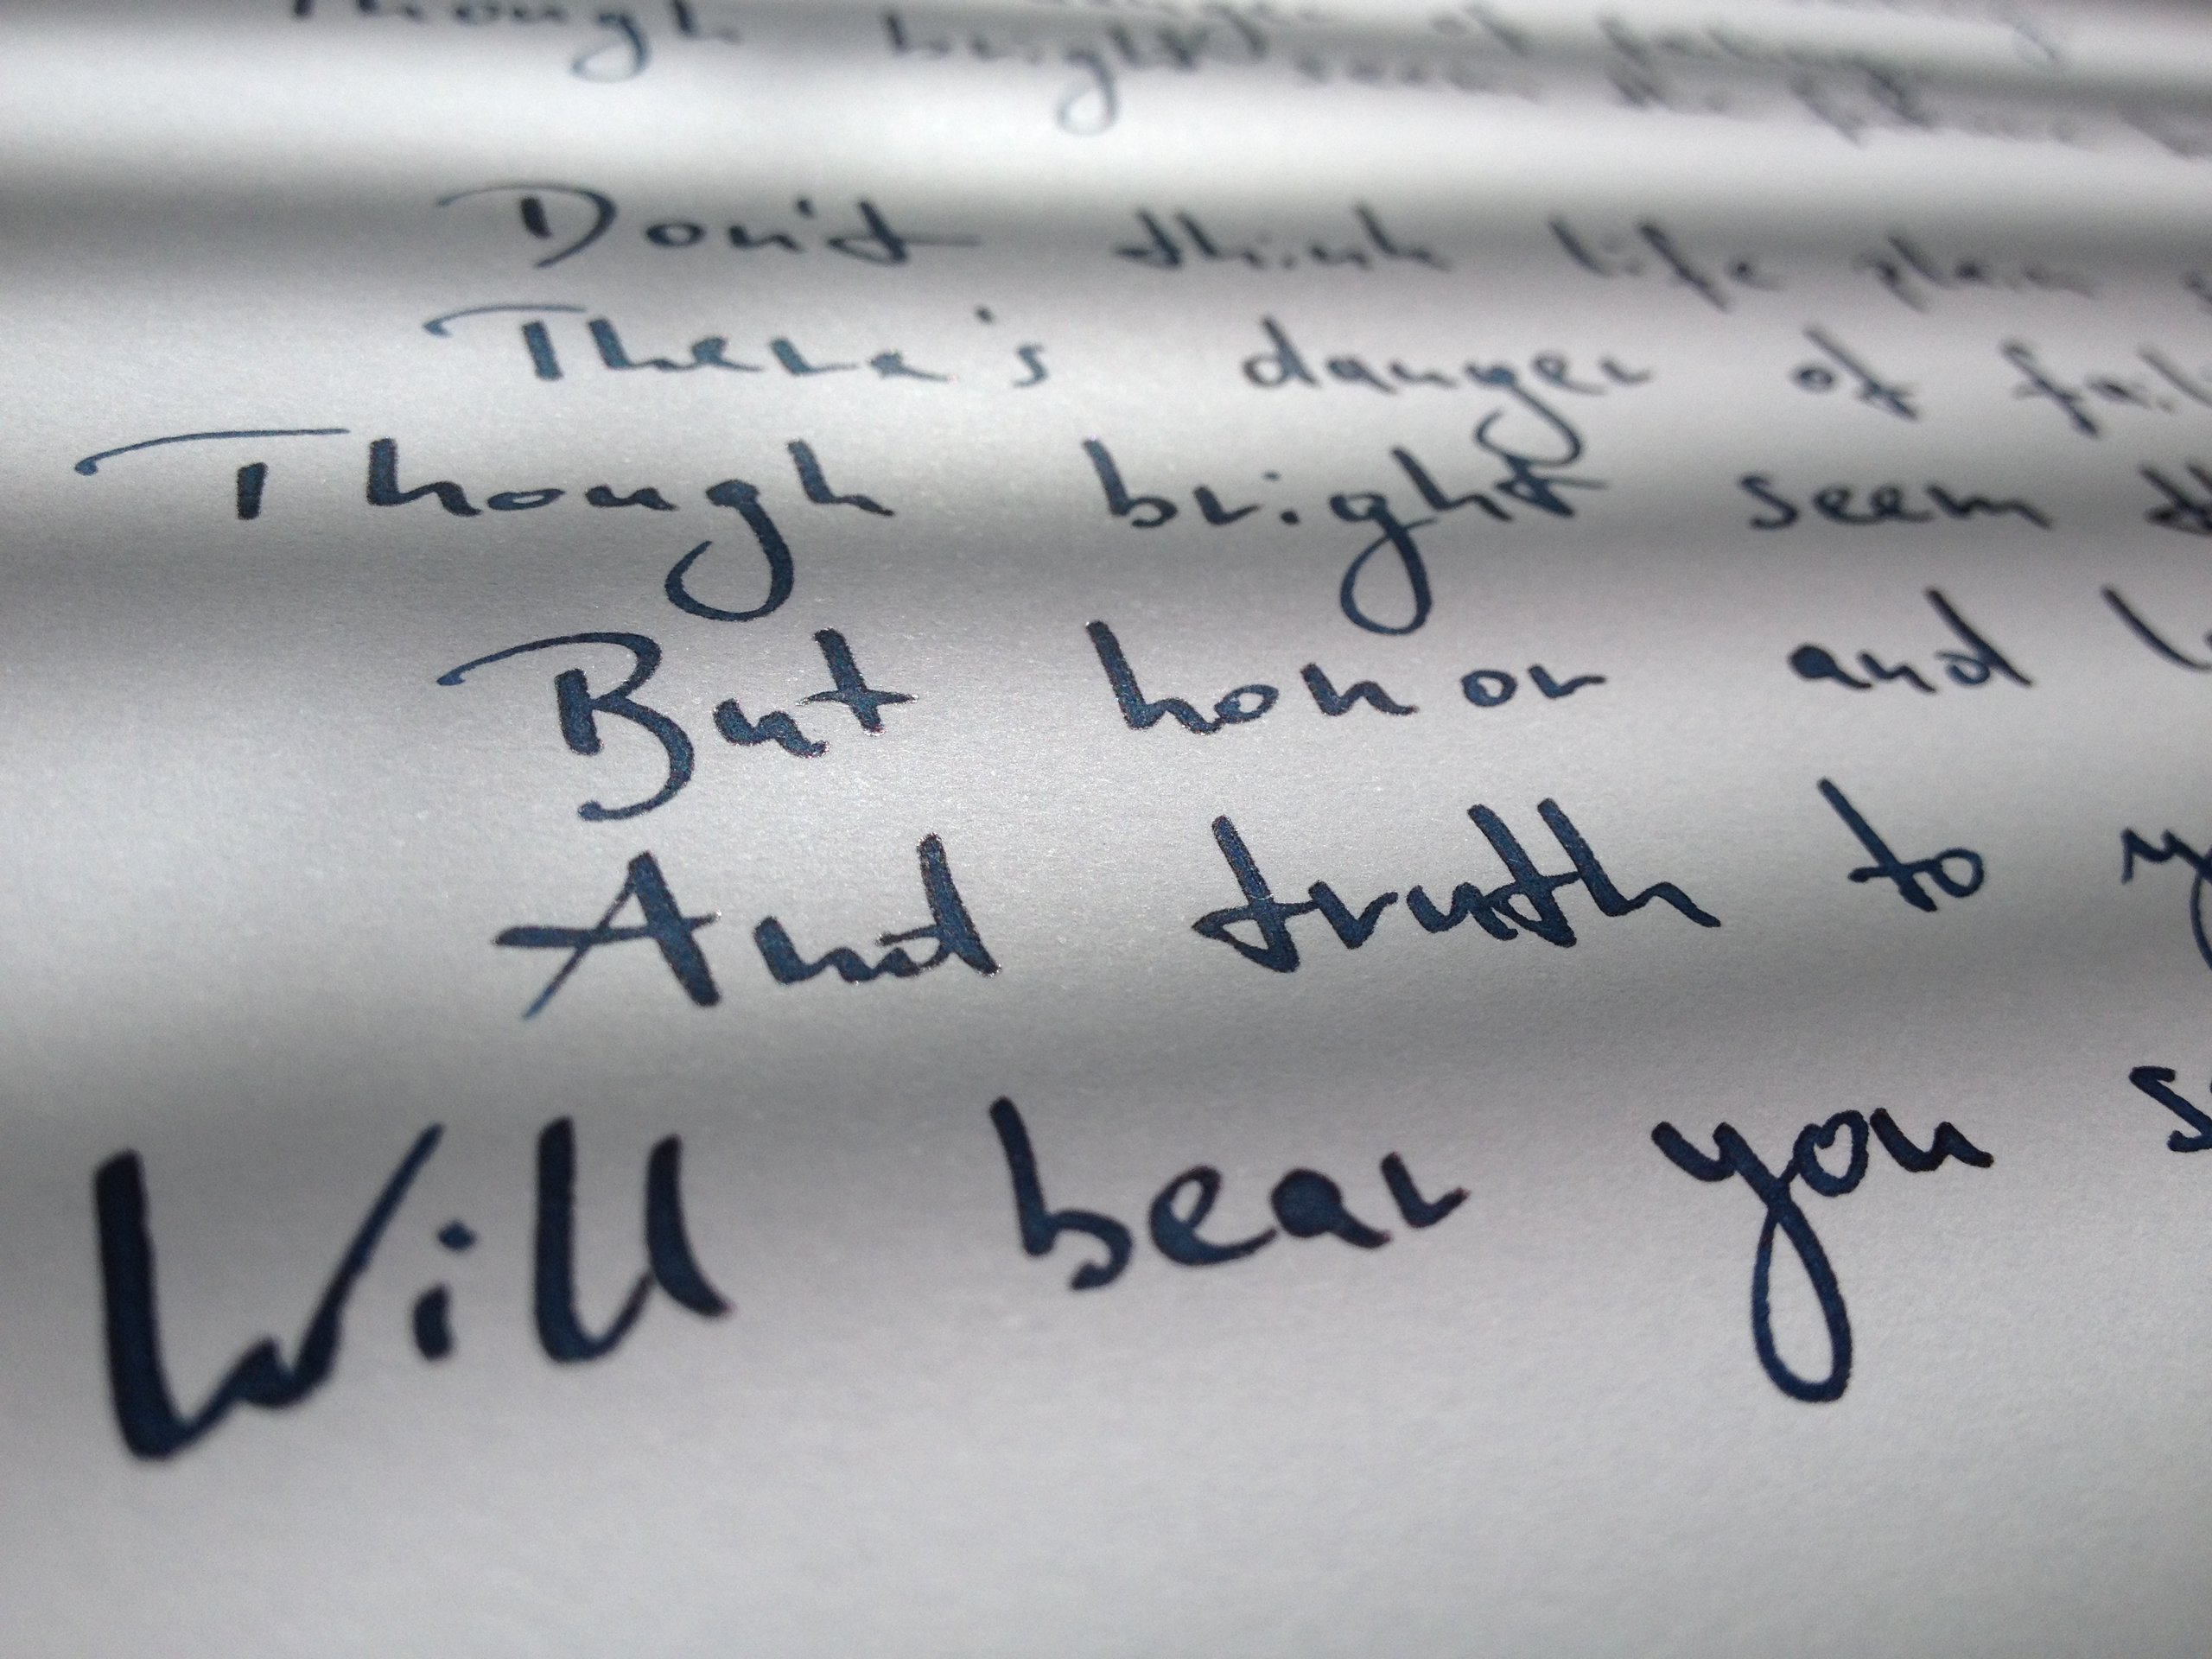 Though bright seem the
Don't think life plain
There's danger of fail
Though bright seem th
But honor and l
And truth to y
Will bear you s